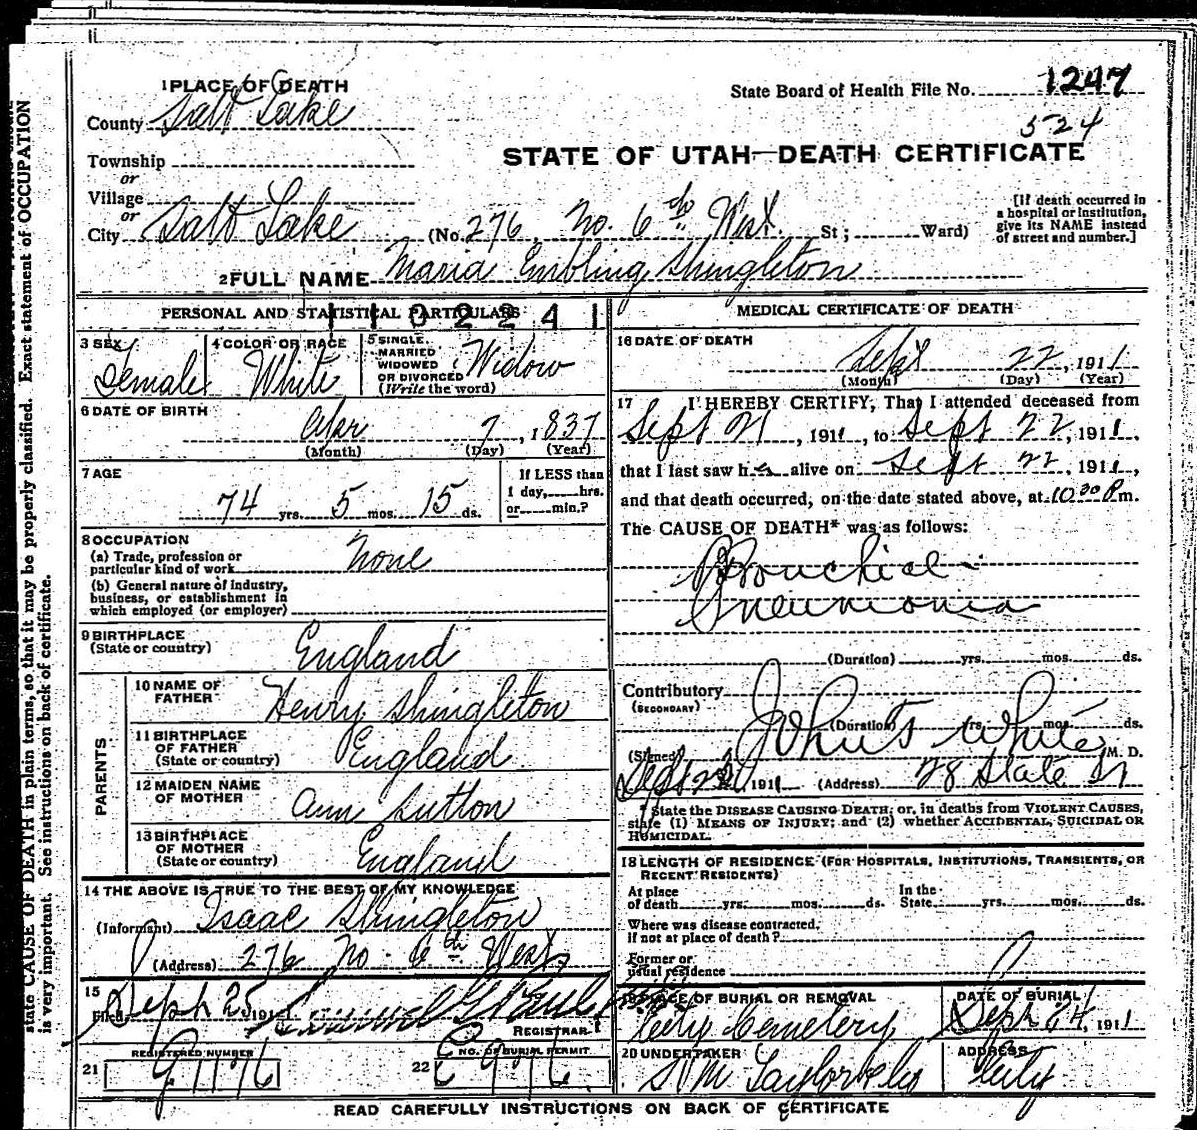 state CAUSE OF DEATH in plain terms, so that it may be properly classified. Exact statement of OCCUPATION
is very important. See instructions on back of certificate.
1 PLACE OF DEATH
County Salt Lake
Township
or
Village
or
City Salt Lake (No. 276, No. 6th West St; Ward)
State Board of Health File No. 1247
524
STATE OF UTAH—DEATH CERTIFICATE
[If death occurred in
a hospital or institution,
give its NAME instead
of street and number.]
2 FULL NAME Maria Embling Shingleton
PERSONAL AND STATISTICAL PARTICULARS
1102241
3 SEX Female
4 COLOR OR RACE White
5 SINGLE
MARRIED
WIDOWED
OR DIVORCED
(Write the word) Widow
6 DATE OF BIRTH
Apr 7, 1837
(Month) (Day) (Year)
7 AGE
74 yrs. 5 mos. 15 ds.
If LESS than
1 day, hrs.
or min.?
8 OCCUPATION
(a) Trade, profession or
particular kind of work None
(b) General nature of industry,
business, or establishment in
which employed (or employer)
9 BIRTHPLACE
(State or country) England
PARENTS
10 NAME OF
FATHER Henry Shingleton
11 BIRTHPLACE
OF FATHER
(State or country) England
12 MAIDEN NAME
OF MOTHER Ann Sutton
13 BIRTHPLACE
OF MOTHER
(State or country) England
14 THE ABOVE IS TRUE TO THE BEST OF MY KNOWLEDGE
(Informant) Isaac Shingleton
(Address) 276 No. 6th West
15
Filed Sept 25 1911
REGISTRAR
21 REGISTERED NUMBER
22 NO. OF BURIAL PERMIT
MEDICAL CERTIFICATE OF DEATH
16 DATE OF DEATH
Sept 22, 1911
(Month) (Day) (Year)
17 I HEREBY CERTIFY, That I attended deceased from
Sept 21, 1911, to Sept 22, 1911,
that I last saw her alive on Sept 22, 1911,
and that death occurred, on the date stated above, at 10 30 P m.
The CAUSE OF DEATH* was as follows:
Bronchial
Pneumonia
(Duration) yrs. mos. ds.
Contributory
(SECONDARY)
(Duration) yrs. mos. ds.
(Signed) White M. D.
Sept 1911 (Address) 28 State St
* State the DISEASE CAUSING DEATH; or, in deaths from VIOLENT CAUSES,
state (1) MEANS OF INJURY; and (2) whether ACCIDENTAL, SUICIDAL OR
HOMICIDAL.
18 LENGTH OF RESIDENCE (FOR HOSPITALS, INSTITUTIONS, TRANSIENTS, OR
RECENT RESIDENTS)
At place
of death yrs. mos. ds.
In the
State yrs. mos. ds.
Where was disease contracted,
if not at place of death?
Former or
usual residence
19 PLACE OF BURIAL OR REMOVAL
City Cemetery
DATE OF BURIAL
Sept 24, 1911
20 UNDERTAKER
S M Taylor & Co
ADDRESS
City
READ CAREFULLY INSTRUCTIONS ON BACK OF CERTIFICATE